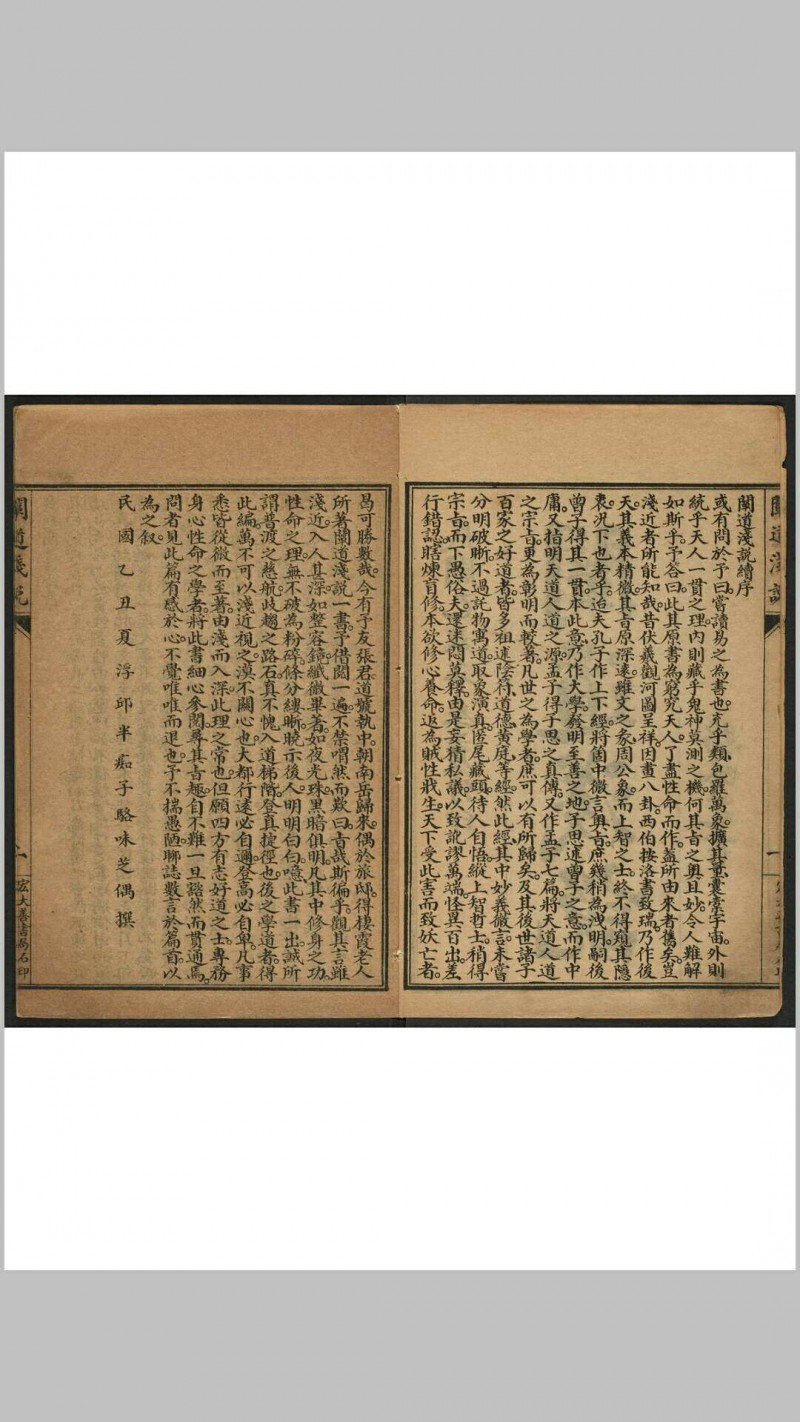 闡道淺說續序
或有問於予曰嘗讀易之為書也充乎類包羅萬象擴其量囊槖宇宙外則
統乎天人一貫之理內則藏乎鬼神莫測之機何其旨之奧且妙令人難解
如斯乎予答曰此其原書為窮究天人了盡性命而作蓋所由來者舊矣豈
淺近者所能知哉昔伏羲觀河圖呈祥因畫八卦西伯按洛書致瑞乃作後
天其義本精微其旨原深遠雖文之彖周公象而上智之士終不得窺其隱
衷況下也者乎迨夫孔子作上下經將箇中微言奧旨庶幾稍為洩明嗣後
曾子得其一貫本此意乃作大學發明至善之地子思述曾子之意而作中
庸又指明天道人道之源孟子得子思之真傳又作孟子七篇將天道人道
之宗旨更為彰明而較著凡世之為學者庶可以有所歸矣及其後世諸子
百家之好道者皆多祖述陰符道德黃庭等經然此經其中妙義微言未嘗
分明破晰不過託物寓道取象演真匿尾藏頭待人自悟縱上智哲士稍得
宗旨而下愚俗夫還迷悶莫釋由是妄猜私議以致訛謬萬端怪異百出差
行錯認瞎煉盲修本欲修心養命返為賊性戕生天下受此害而致妖亡者
曷可勝數哉今有予友張君道號執中朝南岳歸來偶於旅邸得棲霞老人
所著闡道淺說一書予借閱一遍不禁喟然而歎曰旨哉斯編乎觀其言雖
淺近入人甚深如整容鏡纖微畢著如夜光珠黑暗俱明凡其中修身之功
性命之理無不破為粉碎條分縷晰曉示後人明明白白噫此書一出誠所
謂普渡之慈航歧趨之路石真不愧入道梯階登真捷徑也後之學道者得
此編萬不可以淺近視之漠不關心也大都行遠必自邇登高必自卑凡事
悉皆從微而至著由淺而入深此理之常也但願四方有志好道之士專務
身心性命之學者將此書細心參閱尋其旨趣自不難一旦豁然而貫通焉
問者見此篇有感於心不覺唯唯而退也予不揣愚陋聊誌數言於篇首以
為之叙
民國乙丑夏浮邱半痴子駱味芝偶撰
闡道淺說
一
宏大善書局石印